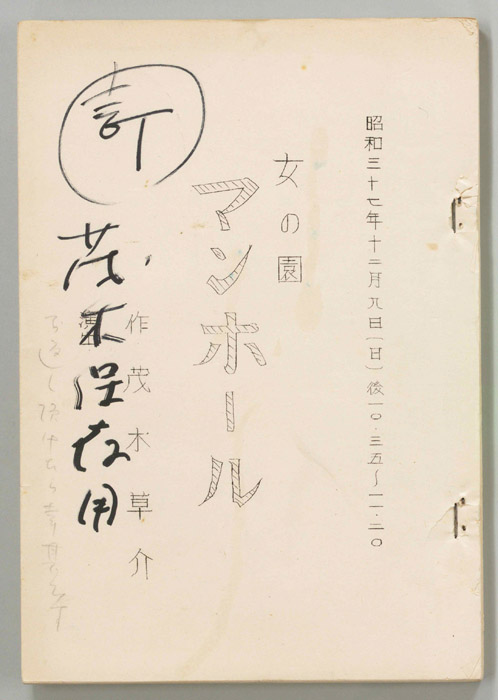 昭和三十七年十二月九日（日）後一〇・三五～一一・二〇
女の園
マンホール
作 茂木草介
訂
茂木保存用